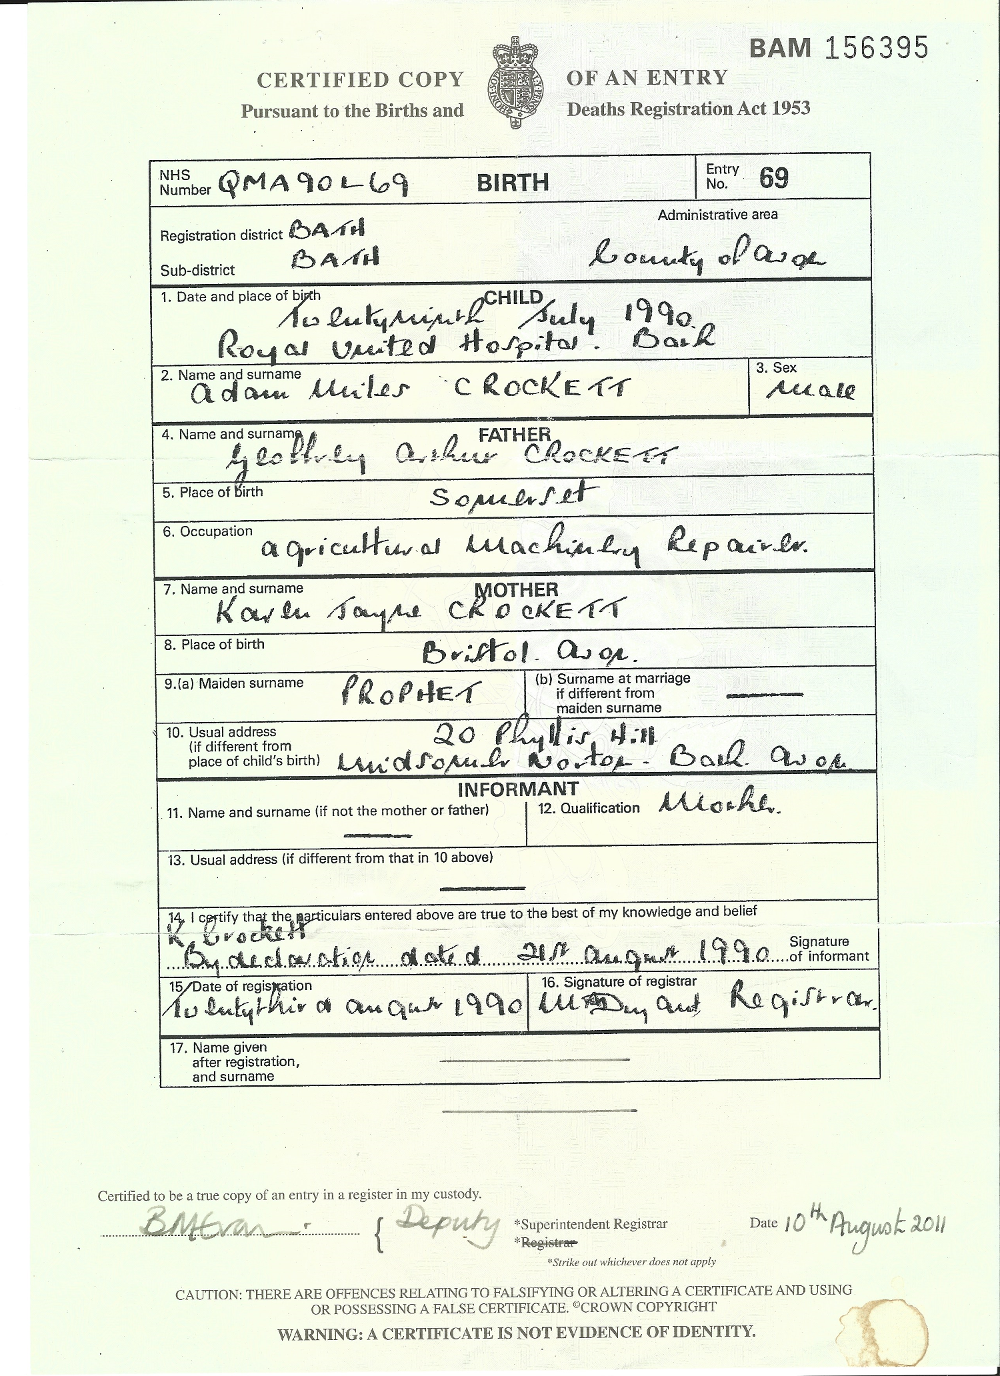 BAM 156395
CERTIFIED COPY OF AN ENTRY
Pursuant to the Births and Deaths Registration Act 1953
NHS Number QMA90L69 BIRTH Entry No. 69
Administrative area
Registration district BATH
Sub-district BATH County of Avon
1. Date and place of birth CHILD
Twentyninth July 1990
Royal United Hospital. Bath
2. Name and surname 3. Sex
Adam Miles CROCKETT Male
4. Name and surname FATHER
Geoffrey Arthur CROCKETT
5. Place of birth Somerset
6. Occupation Agricultural Machinery Repairer.
7. Name and surname MOTHER
Karen Jayne CROCKETT
8. Place of birth Bristol. Avon.
9.(a) Maiden surname PROPHET (b) Surname at marriage
if different from
maiden surname
10. Usual address 20 Phyllis Hill
(if different from
place of child's birth) Midsomer Norton - Bath. Avon
INFORMANT
11. Name and surname (if not the mother or father) 12. Qualification Mother.
13. Usual address (if different from that in 10 above)
14. I certify that the particulars entered above are true to the best of my knowledge and belief
K. Crockett
By declaration dated 21st August 1990 Signature
of informant
15. Date of registration 16. Signature of registrar
Twentythird August 1990 Registrar.
17. Name given
after registration,
and surname
Certified to be a true copy of an entry in a register in my custody.
{ Deputy *Superintendent Registrar Date 10th August 2011
*Registrar
*Strike out whichever does not apply
CAUTION: THERE ARE OFFENCES RELATING TO FALSIFYING OR ALTERING A CERTIFICATE AND USING
OR POSSESSING A FALSE CERTIFICATE. ©CROWN COPYRIGHT
WARNING: A CERTIFICATE IS NOT EVIDENCE OF IDENTITY.